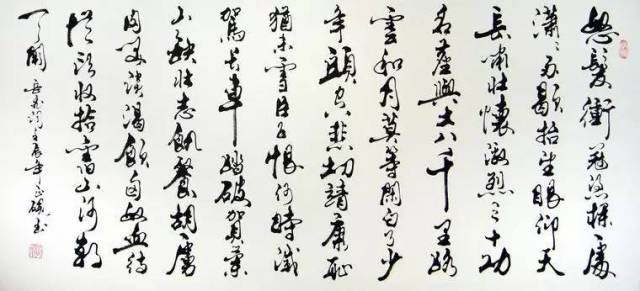 怒髮衝冠憑欄處
瀟〻雨歇抬望眼仰天
長嘯壯懷激烈三十功
名塵與土八千里路
雲和月莫等閑白了少
年頭空悲切靖康恥
猶未雪臣子恨何時滅
駕長車踏破賀蘭
山缺壯志飢餐胡虜
肉笑談渴飲匈奴血待
從頭收拾舊山河朝
天闕 岳飛詞 壬辰年